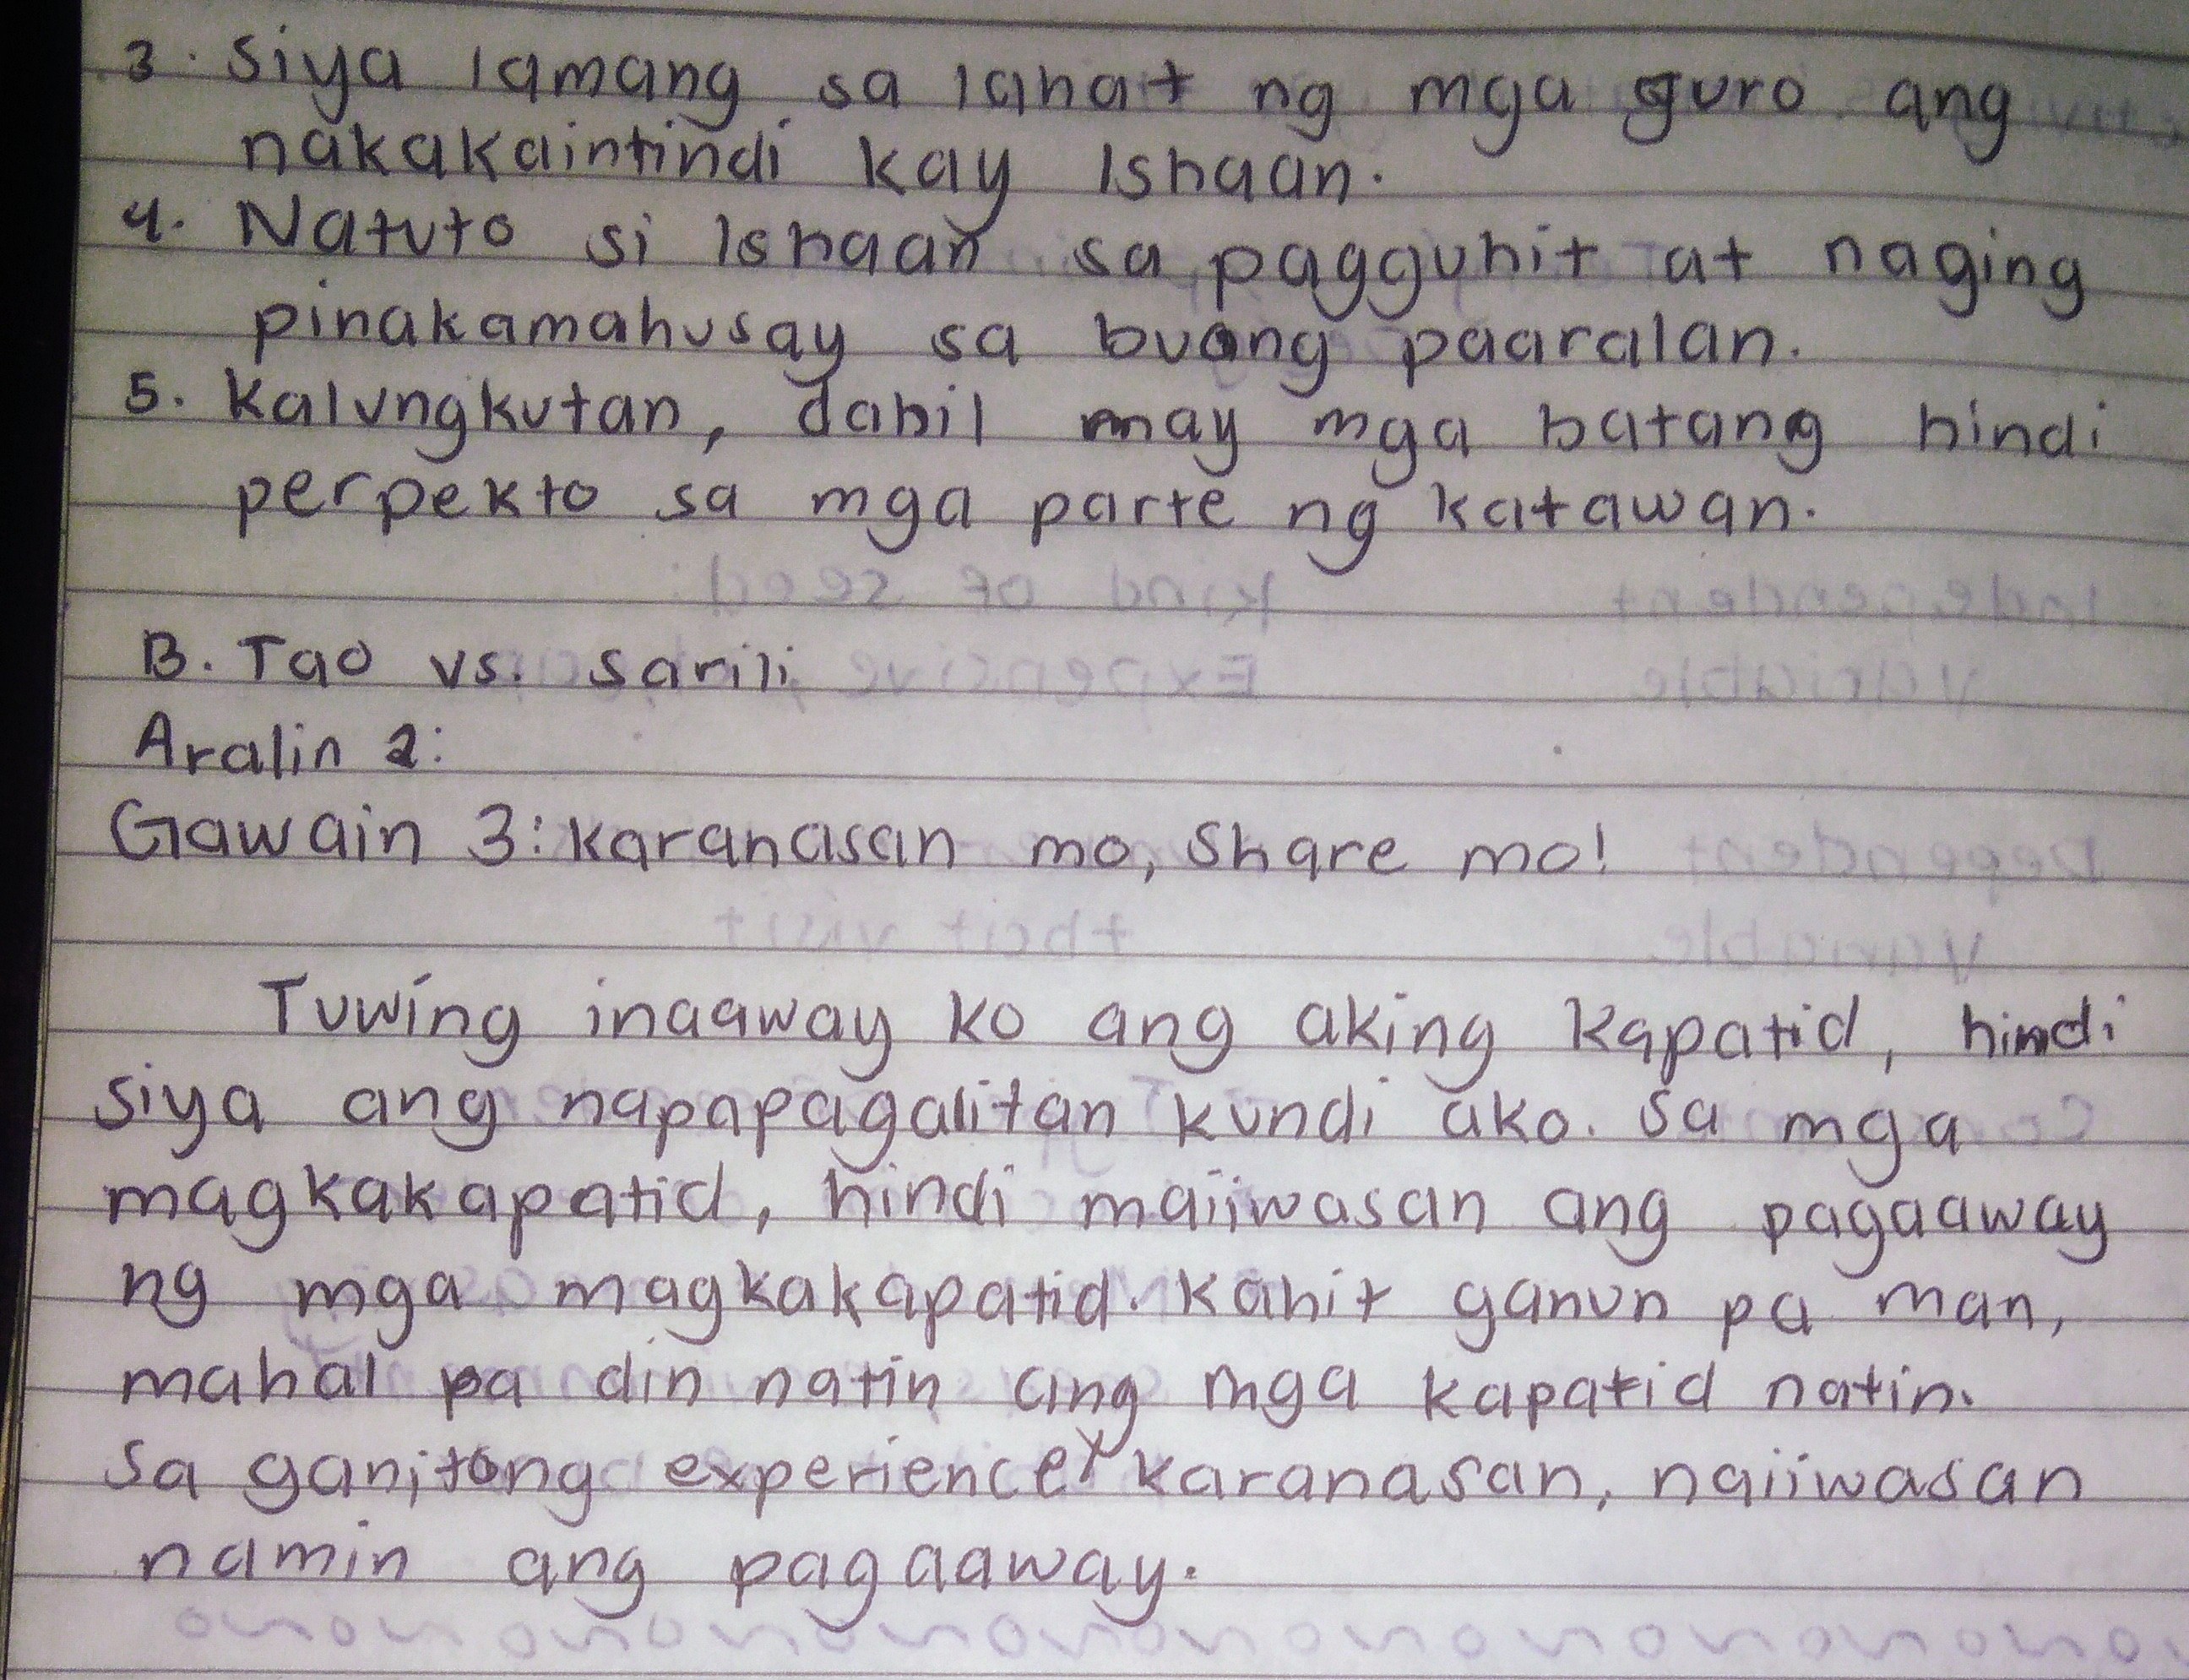 3. Siya lamang sa lahat ng mga guro ang
nakakaintindi kay Ishaan.
4. Natuto si Ishaan sa pagguhit at naging
pinakamahusay sa buong paaralan.
5. Kalungkutan, dahil may mga batang hindi
perpekto sa mga parte ng katawan.
kind of seed:
Independent
B. Tao vs. sarili
Expensive
Variable
Aralin 2:
Gawain 3: Karanasan mo, Share mo!
Dependent
Variable
that visit
Tuwing inaaway ko ang aking kapatid, hindi
siya ang napapagalitan kundi ako. Sa mga
magkakapatid, hindi maiiwasan ang pagaaway
ng mga magkakapatid. Kahit ganun pa man,
mahal pa din natin ang mga kapatid natin.
Sa ganitong experience, karanasan, naiiwasan
namin ang pagaaway.